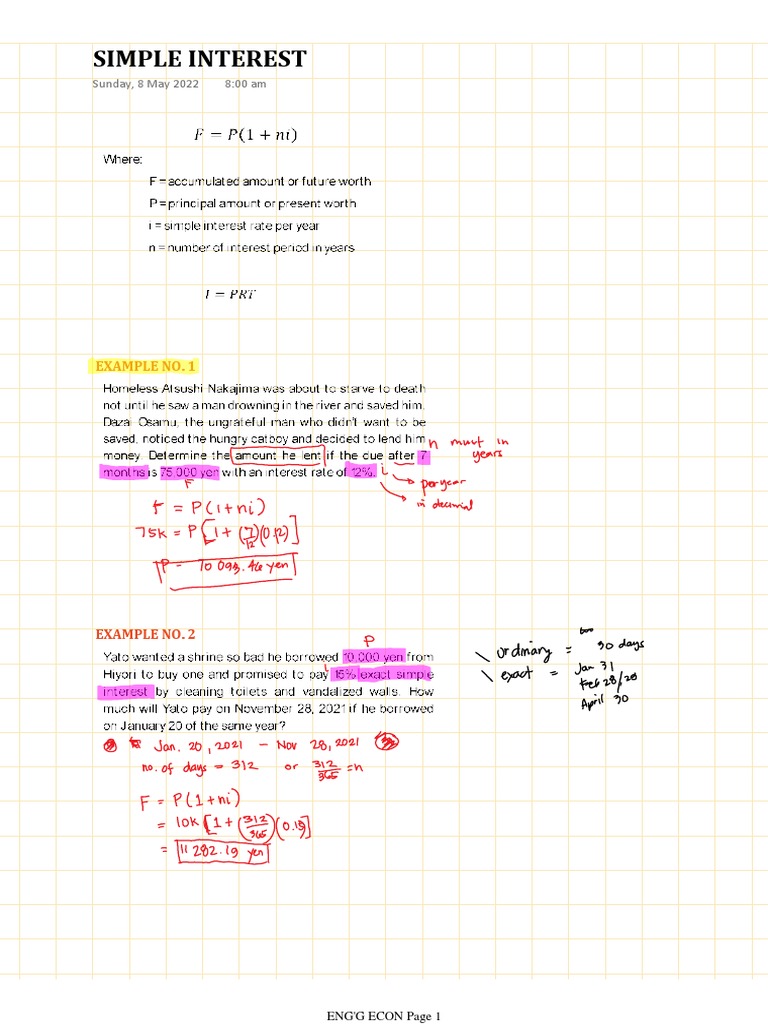 SIMPLE INTEREST
Sunday, 8 May 2022 8:00 am
F = P(1 + ni)
Where:
F = accumulated amount or future worth
P = principal amount or present worth
i = simple interest rate per year
n = number of interest period in years
I = PRT
EXAMPLE NO. 1
Homeless Atsushi Nakajima was about to starve to death
not until he saw a man drowning in the river and saved him.
Dazai Osamu, the ungrateful man who didn't want to be
saved, noticed the hungry catboy and decided to lend him
money. Determine the amount he lent if the due after 7
months is 75,000 yen with an interest rate of 12%.
n must in
years
F
i
per year
in decimal
F = P(1+ni)
75k = P[1+(7/12)(0.12)]
P = 70 093.46 yen
EXAMPLE NO. 2
P
Yato wanted a shrine so bad he borrowed 10,000 yen from
Hiyori to buy one and promised to pay 15% exact simple
interest by cleaning toilets and vandalized walls. How
much will Yato pay on November 28, 2021 if he borrowed
on January 20 of the same year?
i
\ ordinary = 30 days
\ exact = Jan 31
Feb 28/29
April 30
Jan. 20, 2021 - Nov 28, 2021
no. of days = 312 or 312/365 = n
F = P(1+ni)
= 10k[1+(312/365)(0.15)]
= 11 282.19 yen
ENG'G ECON Page 1